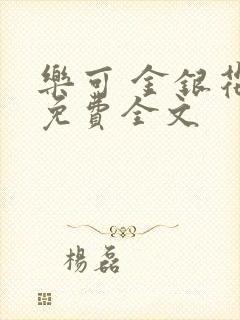 樂可 金銀花
免費全文
楊磊